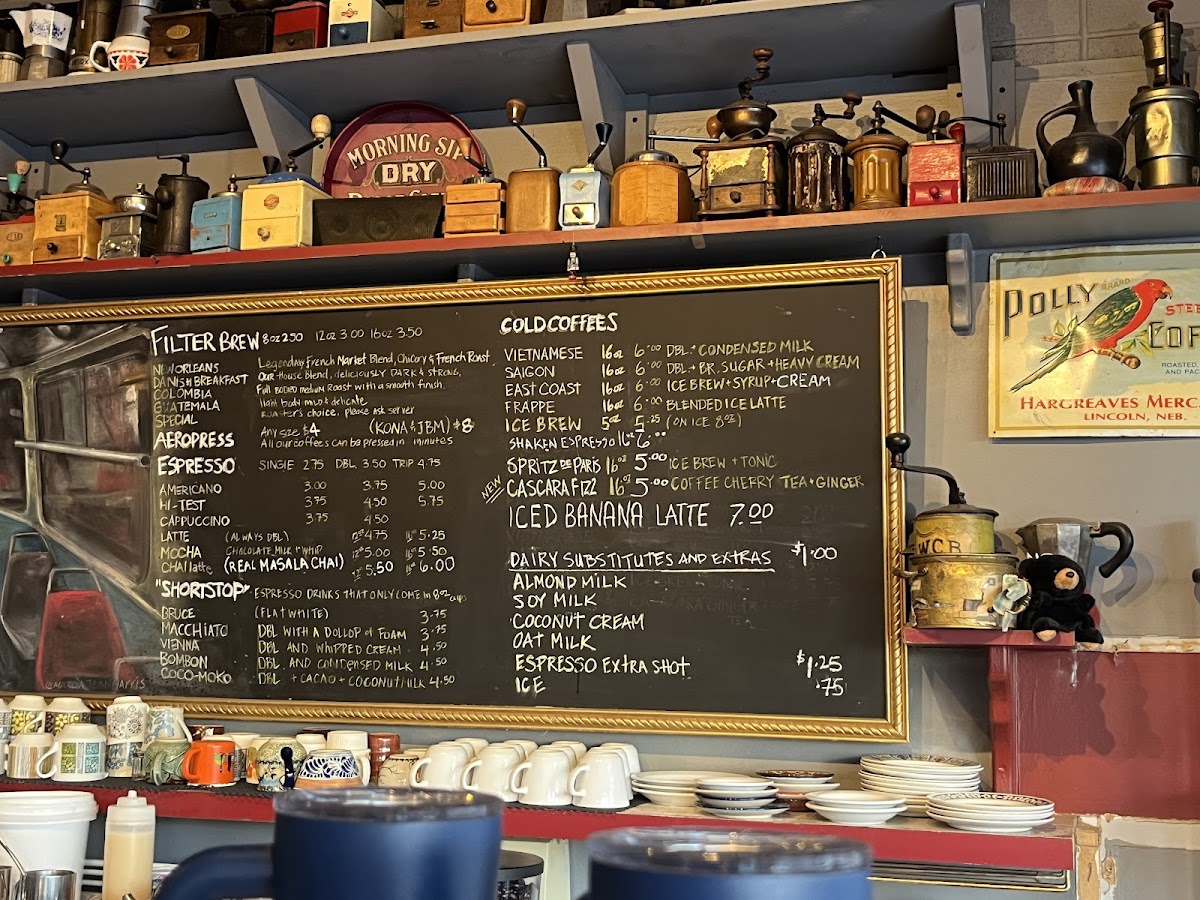 MORNING
DRY
POLLY BRAND
HARGREAVES MERC
LINCOLN, NEB.
ROASTED,
AND PAC
W.C.B.
FILTER BREW 8oz 2.50 12oz 3.00 16oz 3.50
NEW ORLEANS Legendary French Market Blend, Chicory & French Roast.
DANISH BREAKFAST Our House Blend, deliciously DARK & STRONG.
COLOMBIA Full bodied medium Roast with a smooth finish.
GUATEMALA light body mild & delicate
SPECIAL Roaster's choice, please ask server
AEROPRESS Any size $4 (KONA & JBM) $8
All our coffees can be pressed in minutes
ESPRESSO SINGLE 2.75 DBL 3.50 TRIP 4.75
AMERICANO 3.00 3.75 5.00
HI-TEST 3.75 4.50 5.75
CAPPUCCINO 3.75 4.50
LATTE (ALWAYS DBL) 12oz 4.75 16oz 5.25
MOCHA CHACOLATE MILK + WHIP 12oz 5.00 16oz 5.50
CHAI latte (REAL MASALA CHAI) 12oz 5.50 16oz 6.00
"SHORTSTOP" ESPRESSO DRINKS THAT ONLY COME IN 8oz cups
BRUCE (FLAT WHITE) 3.75
MACCHIATO DBL WITH A DOLLOP of FOAM 3.75
VIENNA DBL AND WHIPPED CREAM 4.50
BOMBON DBL AND CONDENSED MILK 4.50
COCO-MOKO DBL + CACAO + COCONUT MILK 4.50
COLD COFFEES
VIETNAMESE 16oz 6.00 DBL + CONDENSED MILK
SAIGON 16oz 6.00 DBL + BR. SUGAR + HEAVY CREAM
EAST COAST 16oz 6.00 ICE BREW + SYRUP + CREAM
FRAPPE 16oz 6.00 BLENDED ICE LATTE
ICE BREW 5oz 5.25 (ON ICE 8oz)
SHAKEN ESPRESSO 16oz 6.00
SPRITZ DE PARIS 16oz 5.00 ICE BREW + TONIC
NEW CASCARA FIZZ 16oz 5.00 COFFEE CHERRY TEA + GINGER
ICED BANANA LATTE 7.00
DAIRY SUBSTITUTES AND EXTRAS $1.00
ALMOND MILK
SOY MILK
COCONUT CREAM
OAT MILK
ESPRESSO EXTRA SHOT $1.25
ICE .75